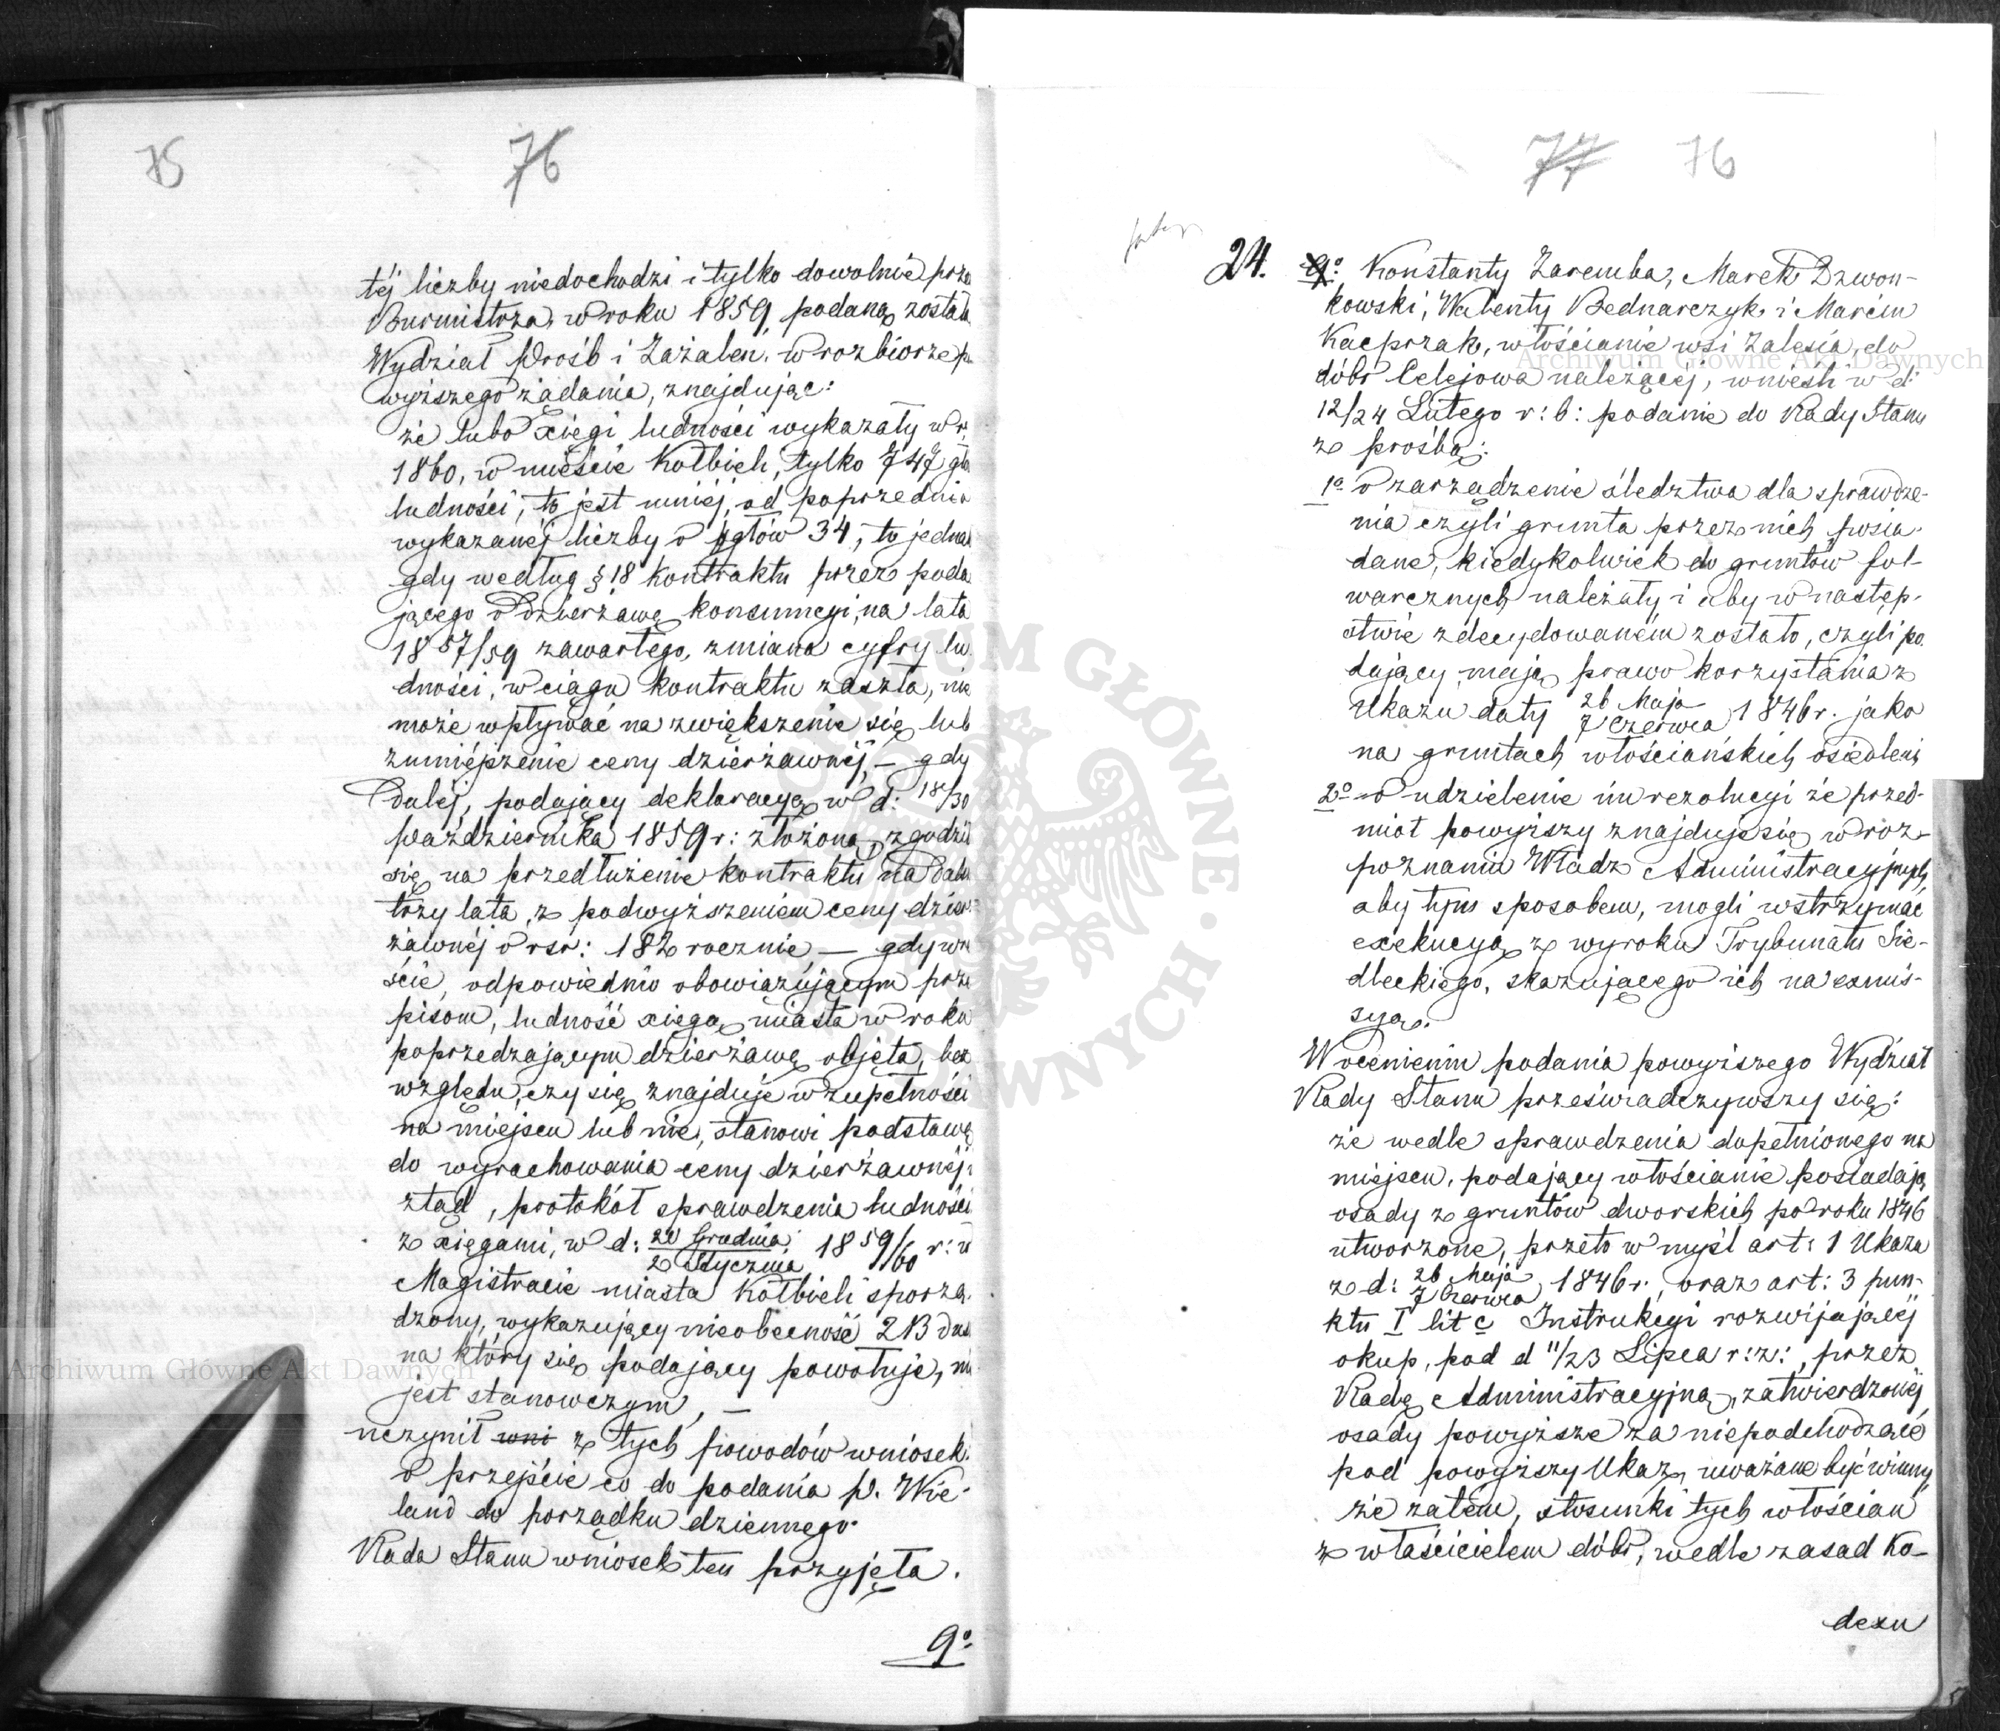 75
76
téj liczby niedochodzi i tylko dowolnie prze
Burmistrza, w roku 1859, podaną została
Wydział Próśb i Zażaleń, w rozbiorze po
wyższego żądania, znajdując:
że lubo xięgi ludności wykazały w r.
1860, w mieście Kołbieli, tylko 747 głó
ludności, to jest mniéj, od poprzednio
wykazanéj liczby o głów 34, to jedna
gdy według § 18 kontraktu przez poda
jącego o dzierżawę konsumcyi, na lata
1857/59 zawartego, zmiana cyfry lu
dności, w ciągu kontraktu zaszła, nie
może wpływać na zwiększenie się lub
zmniéjszenie ceny dzierżawnéj, — gdy
daléj, podający deklaracyą w d: 18/30
Października 1859 r: złożoną, zgodził
się na przedłużenie kontraktu na dalsze
trzy lata, z podwyższeniem ceny dzier=
żawnéj o rsr: 182 rocznie, — gdy wre
ście, odpowiednio obowiązującym prze
pisom, ludność xięgą miasta w roku
poprzedzającym dzierżawę objęta, bez
względu, czy się znajduje w zupełności
na miejscu lub nie, stanowi podstawę
do wyrachowania ceny dzierżawnéj,
ztąd, protokół sprawdzenia ludności
z xięgami, w d: 21 Grudnia / 2 Stycznia 1859/60 r: w
Magistracie miasta Kołbieli sporzą
dzony, wykazujący nieobecność 213 dusz
na który się podający powołuje, nie
jest stanowczym, —
uczynił wni z tych powodów wniosek
o przejście co do podania p. Wie-
land do porządku dziennego.
Rada Stanu wniosek ten przyjęła.
9°
77 76
24. 9°. Konstanty Zaremba, Marek Dzwon-
kowski, Walenty Bednarczyk i Marcin
Kacprzak, włościanie wsi Zalesia, do
dóbr Celejowa należącéj, wnieśli w d:
12/24 Lutego r: b: podanie do Rady Stanu
z prośbą:
1° o zarządzenie śledztwa dla sprawdze-
nia czyli grunta przez nich posia-
dane, kiedykolwiek do gruntów fol-
warcznych należały i aby w następ-
stwie zdecydowaném zostało, czyli po
dający mają prawo korzystania z
Ukazu daty 26 Maja / 7 Czerwca 1846 r. jako
na gruntach włościańskich osiedleni
2° o udzielenie im rezolucyi że przed-
miot powyższy znajduje się w roz-
poznaniu Władz Administracyjnych,
aby tym sposobem, mogli wstrzymać
exekucyą z wyroku Trybunału Sie-
dleckiego, skazującego ich na exmis-
syą.
W ocenieniu podania powyższego Wydział
Rady Stanu przeświadczywszy się:
że wedle sprawdzenia dopełnionego na
miejscu, podający włościanie posiadają
osady z gruntów dworskich po roku 1846
utworzone, przeto w myśl art: 1 Ukazu
z d: 26 Maja / 7 Czerwca 1846 r., oraz art: 3 pun-
ktu I lit c Instrukcyi rozwijającéj
okup, pod d 11/23 Lipca r: z:, przez
Radę Administracyjną, zatwierdzonéj,
osady powyższe za niepodchodzące
pod powyższy Ukaz, uważane być winny,
że zatém, stosunki tych włościan
z właścicielem dóbr, wedle zasad Ko-
dexu
Archiwum Główne Akt Dawnych
Archiwum Główne Akt Dawnych
ARCHIWUM GŁÓWNE AKT DAWNYCH